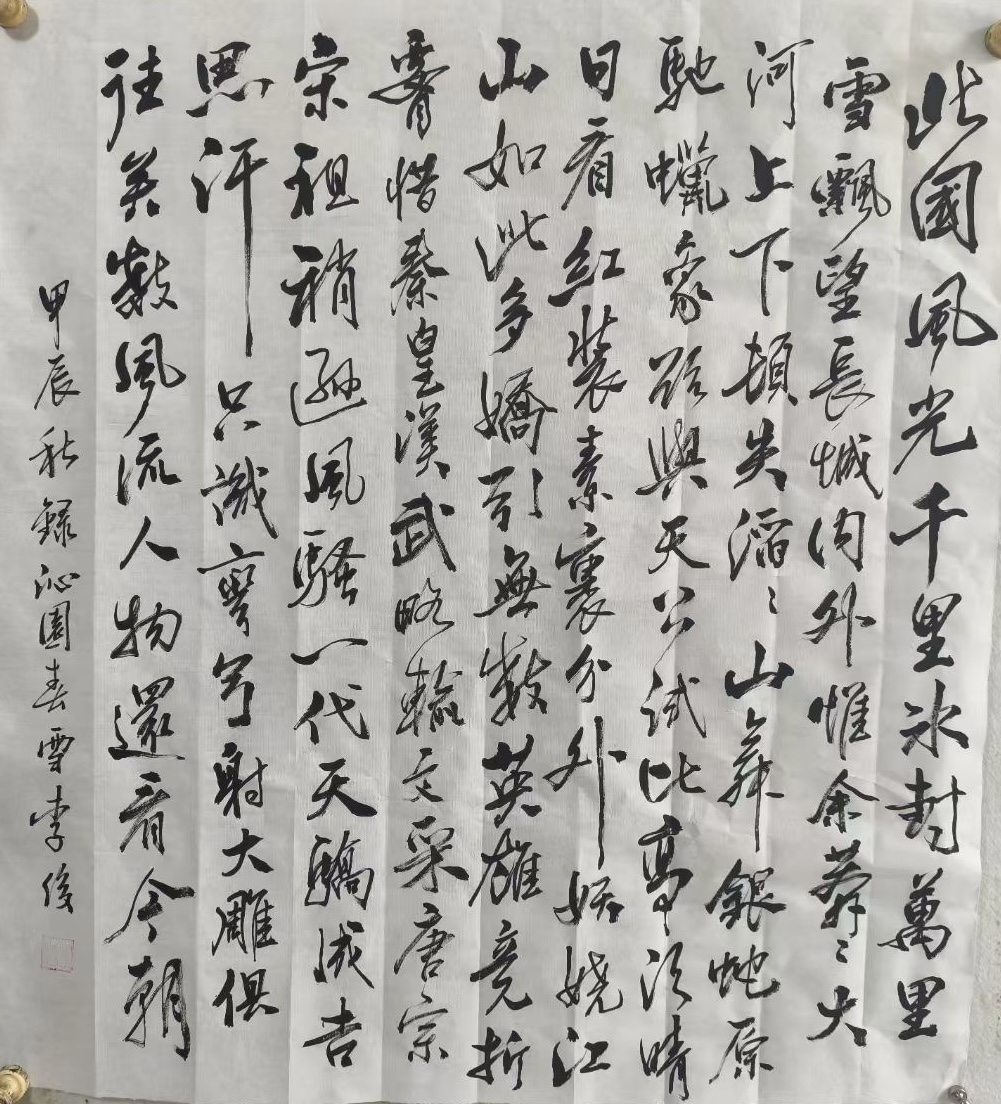 北國風光千里冰封萬里
雪飄望長城内外惟余莽〻大
河上下頓失滔〻山舞銀蛇原
馳蠟象欲與天公試比高須晴
日看紅裝素裹分外妖嬈江
山如此多嬌引無數英雄竞折
腰惜秦皇漢武略輸文采唐宗
宋祖稍遜風騷一代天驕成吉
思汗只識彎弓射大雕俱
往矣數風流人物還看今朝
甲辰秋錄沁園春雪李俊